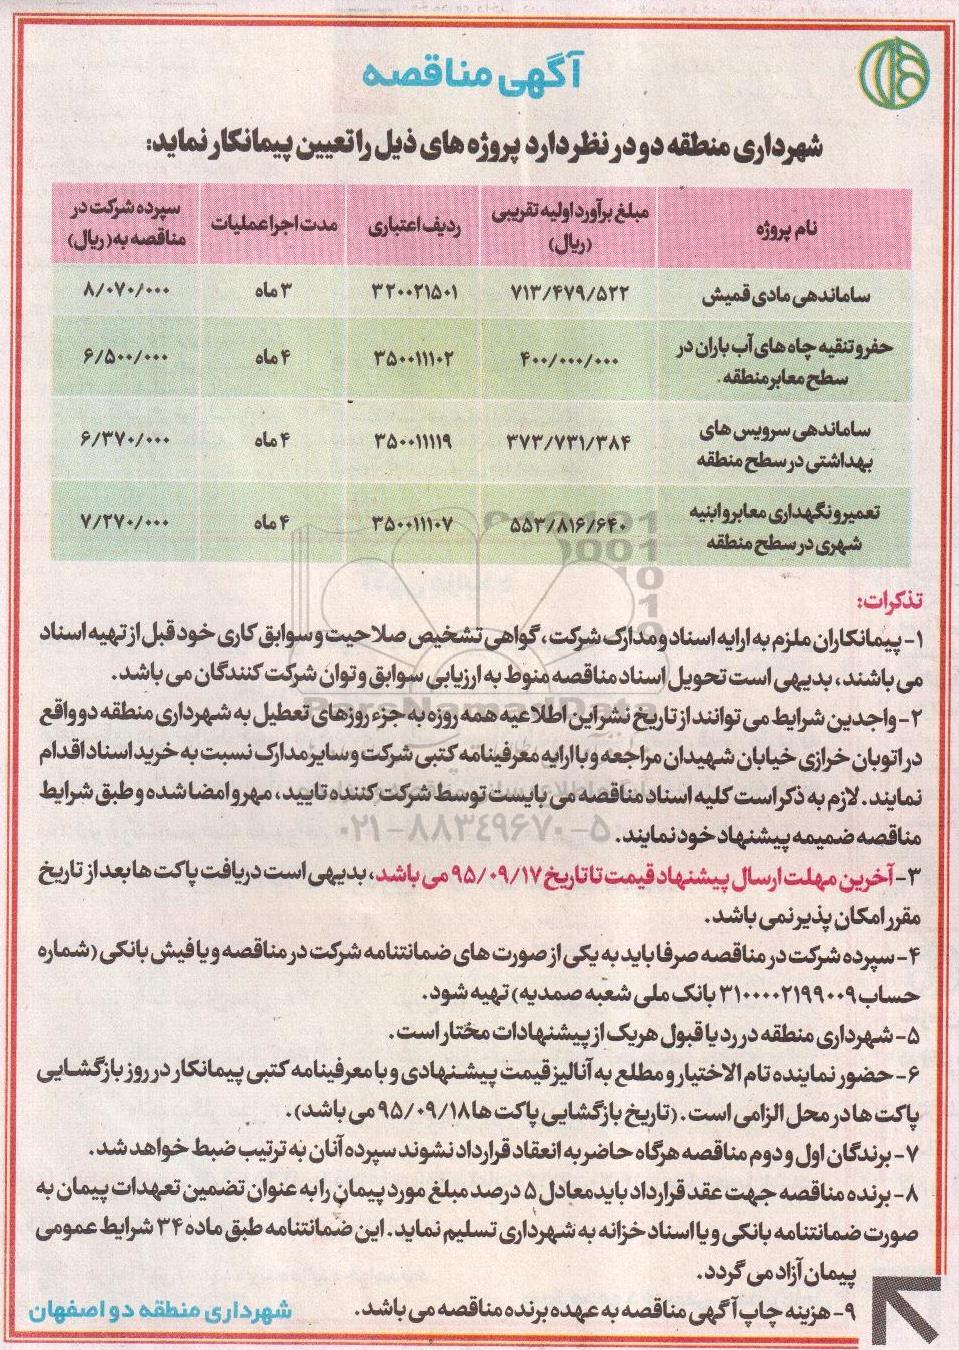 آگهی مناقصه
شهرداری منطقه دو در نظر دارد پروژه های ذیل را تعیین پیمانکار نماید:
نام پروژه | مبلغ برآورد اولیه تقریبی (ریال) | ردیف اعتباری | مدت اجرا عملیات | سپرده شرکت در مناقصه به (ریال)
ساماندهی مادی قمیش | ۷۱۳/۴۷۹/۵۲۲ | ۳۲۰۰۲۱۵۰۱ | ۳ ماه | ۸/۰۷۰/۰۰۰
حفر و تنقیه چاه های آب باران در سطح معابر منطقه. | ۴۰۰/۰۰۰/۰۰۰ | ۳۵۰۰۱۱۱۰۲ | ۴ ماه | ۶/۵۰۰/۰۰۰
ساماندهی سرویس های بهداشتی در سطح منطقه | ۳۷۳/۷۳۱/۳۸۴ | ۳۵۰۰۱۱۱۱۹ | ۴ ماه | ۶/۳۷۰/۰۰۰
تعمیر و نگهداری معابر و ابنیه شهری در سطح منطقه | ۵۵۳/۸۱۶/۶۴۰ | ۳۵۰۰۱۱۱۰۷ | ۴ ماه | ۷/۲۷۰/۰۰۰
تذکرات:
۱- پیمانکاران ملزم به ارایه اسناد و مدارک شرکت، گواهی تشخیص صلاحیت و سوابق کاری خود قبل از تهیه اسناد
می باشند، بدیهی است تحویل اسناد مناقصه منوط به ارزیابی سوابق و توان شرکت کنندگان می باشد.
۲- واجدین شرایط می توانند از تاریخ نشر این اطلاعیه همه روزه به جزء روزهای تعطیل به شهرداری منطقه دو واقع
در اتوبان خرازی خیابان شهیدان مراجعه و با ارایه معرفینامه کتبی شرکت و سایر مدارک نسبت به خرید اسناد اقدام
نمایند. لازم به ذکر است کلیه اسناد مناقصه می بایست توسط شرکت کننده تایید، مهر و امضا شده و طبق شرایط
مناقصه ضمیمه پیشنهاد خود نمایند.
۳- آخرین مهلت ارسال پیشنهاد قیمت تا تاریخ ۹۵/۰۹/۱۷ می باشد، بدیهی است دریافت پاکت ها بعد از تاریخ
مقرر امکان پذیر نمی باشد.
۴- سپرده شرکت در مناقصه صرفا باید به یکی از صورت های ضمانتنامه شرکت در مناقصه و یا فیش بانکی (شماره
حساب ۳۱۰۰۰۰۲۱۹۹۰۰۹ بانک ملی شعبه صمدیه) تهیه شود.
۵- شهرداری منطقه در رد یا قبول هریک از پیشنهادات مختار است.
۶- حضور نماینده تام الاختیار و مطلع به آنالیز قیمت پیشنهادی و با معرفینامه کتبی پیمانکار در روز بازگشایی
پاکت ها در محل الزامی است. (تاریخ بازگشایی پاکت ها ۹۵/۰۹/۱۸ می باشد).
۷- برندگان اول و دوم مناقصه هرگاه حاضر به انعقاد قرارداد نشوند سپرده آنان به ترتیب ضبط خواهد شد.
۸- برنده مناقصه جهت عقد قرارداد باید معادل ۵ درصد مبلغ مورد پیمان را به عنوان تضمین تعهدات پیمان به
صورت ضمانتنامه بانکی و یا اسناد خزانه به شهرداری تسلیم نماید. این ضمانتنامه طبق ماده ۳۴ شرایط عمومی
پیمان آزاد می گردد.
۹- هزینه چاپ آگهی مناقصه به عهده برنده مناقصه می باشد.
شهرداری منطقه دو اصفهان
ParsNamadData
۰۲۱-۸۸۳۴۹۶۷۰-۵